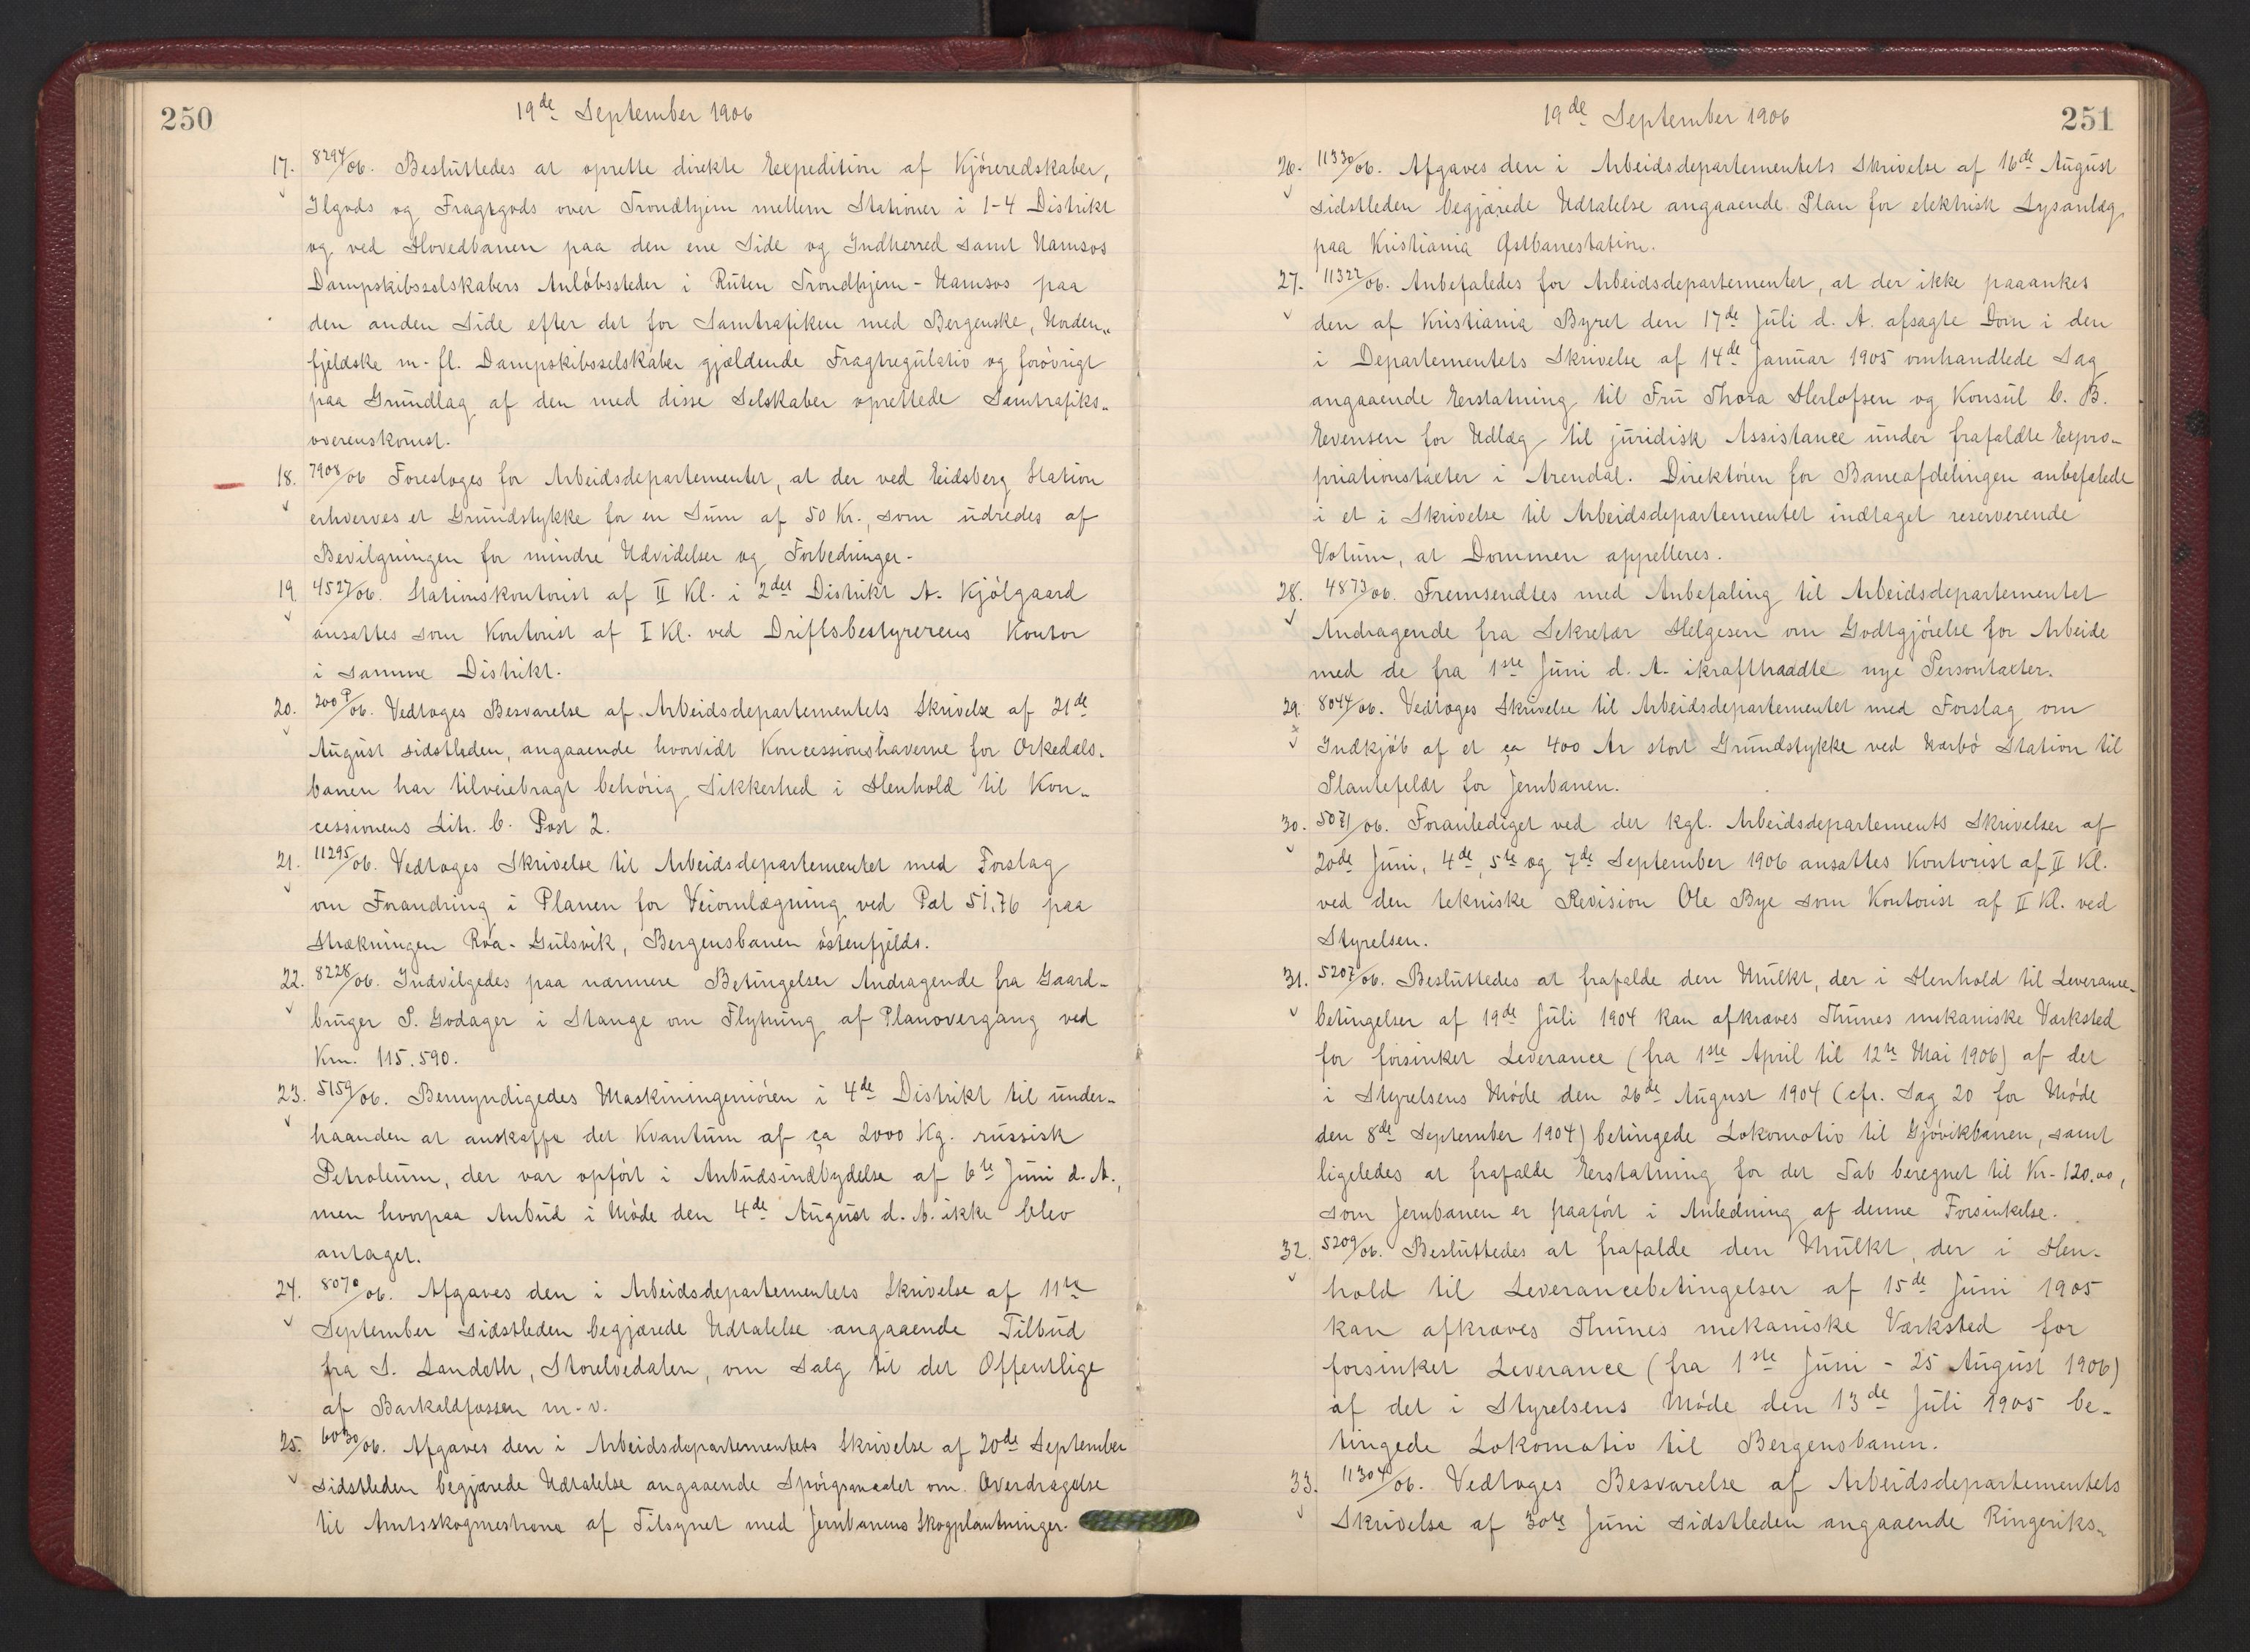 250
19de September 1906
17. 8294/06. Besluttedes at oprette direkte Expedition af Kjøreredskaber,
Ilgods og Fragtgods over Trondhjem mellem Stationer i 1-4 Distrikt
og ved Hovedbanen paa den ene Side og Indherred samt Namsos
Dampskibsselskabers Anløbssteder i Ruten Trondhjem - Namsos paa
den anden Side efter det for Samtrafiken med Bergenske, Norden„
fjeldske m. fl. Dampskibsselskaber gjældende Fragtregulativ og forøvrigt
paa Grundlag af den med disse Selskaber oprettede Samtrafiks„
overenskomst.
18. 7908/06 Foresloges for Arbeidsdepartementet, at der ved Eidsberg Station
erhverves et Grundstykke for en Sum af 50 Kr., som udredes af
Bevilgningen for mindre Udvidelser og Forbedringer.
19. 4527/06. Stationskontorist af II Kl. i 2det Distrikt A. Kjølgaard
ansattes som Kontorist af I Kl. ved Driftsbestyrerens Kontor
i samme Distrikt.
20. 200P/06. Vedtoges Besvarelse af Arbeidsdepartementets Skrivelse af 21de
August sidstleden, angaaende hvorvidt Koncessionshaverne for Orkedals„
banen har tilveiebragt behørig Sikkerhed i Henhold til Kon„
cessionens Litr. C. Post 2.
21. 11295/06. Vedtoges Skrivelse til Arbeidsdepartementet med Forslag
om Forandring i Planen for Veiomlægning ved Pæl 51,76 paa
Strækningen Roa - Gulsvik, Bergensbanen østenfjelds.
22. 8228/06. Indvilgedes paa nærmere Betingelser Andragende fra Gaard„
bruger P. Godager i Stange om Flytning af Planovergang ved
Km. 115.590.
23. 5159/06. Bemyndigedes Maskiningeniøren i 4de Distrikt til under„
haanden at anskaffe det Kvantum af ca 2000 Kg. russisk
Petroleum, der var opført i Anbudsindbydelse af 6te Juni d. A.,
men hvorpaa Anbud i Møde den 4de August d. A. ikke blev
antaget.
24. 8070/06. Afgaves den i Arbeidsdepartementets Skrivelse af 11te
September sidstleden begjærede Udtalelse angaaende Tilbud
fra S. Landeth, Storelvedalen, om Salg til det Offentlige
af Barkaldfossen m. v.
25. 6030/06. Afgaves den i Arbeidsdepartementets Skrivelse af 20de September
sidstleden begjærede Udtalelse angaaende Spørgsmaalet om Overdragelse
til Amtsskogmestrene af Tilsynet med Jernbanens Skogplantninger.
19de September 1906
251
26. 11330/06. Afgaves den i Arbeidsdepartementets Skrivelse af 16de August
sidstleden begjærede Udtalelse angaaende Plan for elektrisk Lysanlæg
paa Kristiania Østbanestation.
27. 11322/06. Anbefaledes for Arbeidsdepartementet, at der ikke paaankes
den af Kristiania Byret den 17de Juli d. A. afsagte Dom i den
i Departementets Skrivelse af 14de Januar 1905 omhandlede Sag
angaaende Erstatning til Fru Thora Herlofsen og Konsul C. B.
Evensen for Udlæg til juridisk Assistance under frafaldte Expro„
priationstakter i Arendal. Direktøren for Baneafdelingen anbefalede
i et i Skrivelse til Arbeidsdepartementet indtaget reserverende
Votum, at Dommen appelleres.
28. 4873/06. Fremsendtes med Anbefaling til Arbeidsdepartementet
Andragende fra Sekretær Helgesen om Godtgjørelse for Arbeide
med de fra 1ste Juni d. A. ikrafttraadte nye Persontaxter.
29. 8044/06. Vedtoges Skrivelse til Arbeidsdepartementet med Forslag om
Indkjøb af et ca 400 Ar stort Grundstykke ved Nærbø Station til
Plantefeldt for Jernbanen.
30. 5071/06. Foranlediget ved det kgl. Arbeidsdepartements Skrivelser af
20de Juni, 4de, 5te og 7de September 1906 ansattes Kontorist af II Kl.
ved den tekniske Revision Ole Bye som Kontorist af II Kl. ved
Styrelsen.
31. 5207/06. Besluttedes at frafalde den Mulkt, der i Henhold til Leverance„
betingelser af 19de Juli 1904 kan afkræves Thunes mekaniske Værksted
for forsinket Leverance (fra 1ste April til 12te Mai 1906) af det
i Styrelsens Møde den 26de August 1904 (cfr. Sag 20 for Møde
den 8de September 1904) betingede Lokomotiv til Gjøvikbanen, samt
ligeledes at frafalde Erstatning for det Tab beregnet til Kr. 120.00,
som Jernbanen er paaført i Anledning af denne Forsinkelse.
32. 5209/06. Besluttedes at frafalde den Mulkt, der i Hen„
hold til Leverancebetingelser af 15de Juni 1905
kan afkræves Thunes mekaniske Værksted for
forsinket Leverance (fra 1ste Juni - 25 August 1906)
af det i Styrelsens Møde den 13de Juli 1905 be„
tingede Lokomotiv til Bergensbanen.
33. 11304/06. Vedtoges Besvarelse af Arbeidsdepartementets
Skrivelse af 30te Juni sidstleden angaaende Ringeriks„